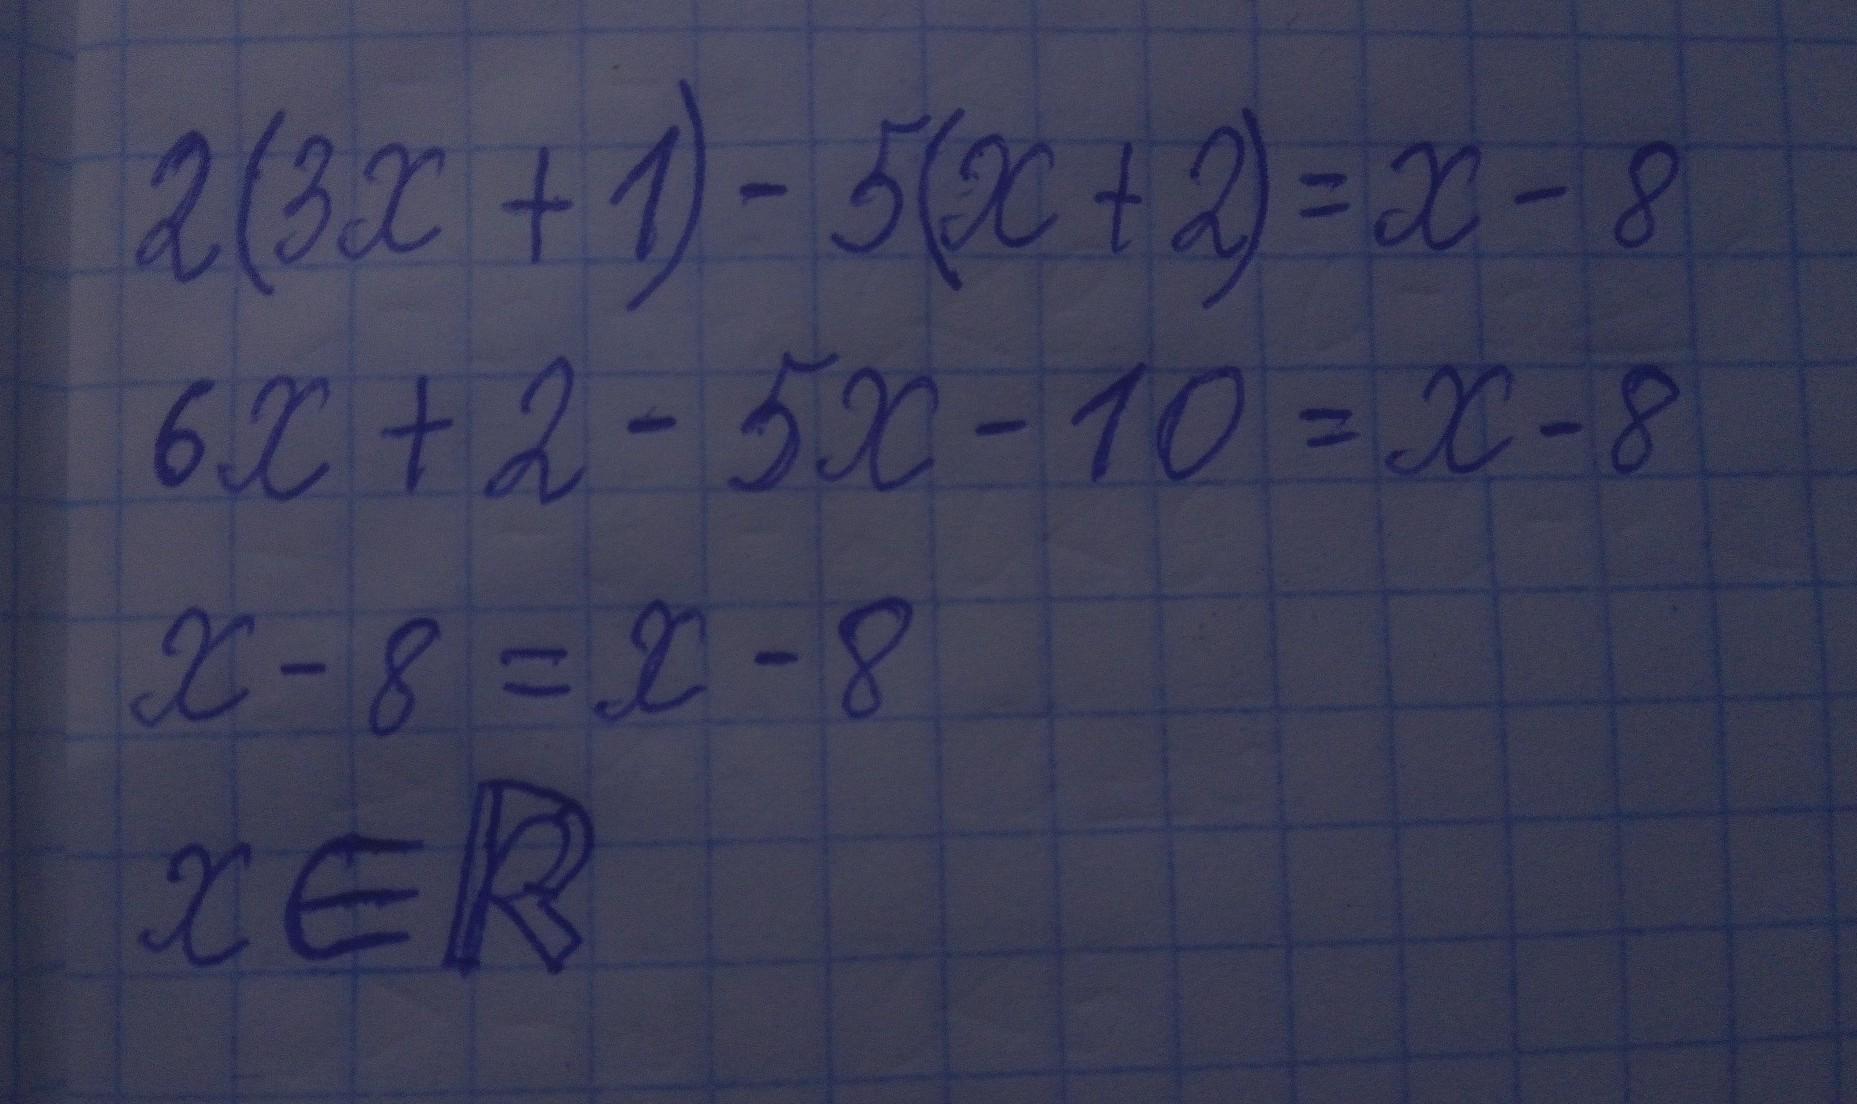 2(3x + 1) - 5(x + 2) = x - 8
6x + 2 - 5x - 10 = x - 8
x - 8 = x - 8
x ∈ ℝ